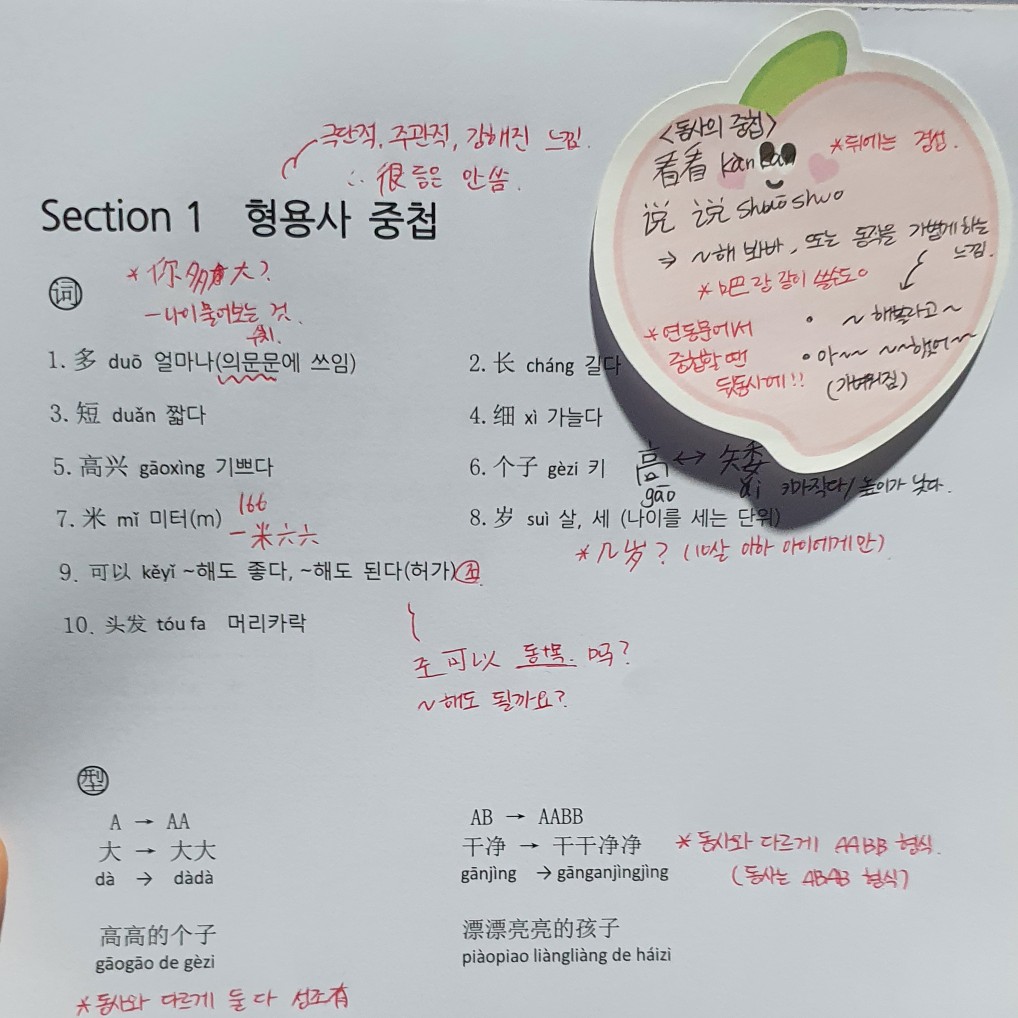 극단적, 주관적, 강해진 느낌.
∴ 很 등은 안씀.
Section 1 형용사 중첩
<동사의 중첩>
看看 kàn kan
*뒤에는 경성.
说 说 shuō shuo
⇒ ~해 봐바, 또는 동작을 가볍게 하는 느낌.
*吧랑 같이 쓸수도○
• ~ 해볼라고~
*연동문에서 중첩할 땐 뒷동사에!!
• 아~~ ~~했어~
(가벼워짐)
词
*你多大?
-나이 물어보는 것.
1. 多 duō 얼마나(의문문에 쓰임)
2. 长 cháng 길다
3. 短 duǎn 짧다
4. 细 xì 가늘다
5. 高兴 gāoxìng 기쁘다
6. 个子 gèzi 키
高 ↔ 矮
gāo ǎi 키 작다/높이가 낮다.
7. 米 mǐ 미터(m)
166
一米六六
8. 岁 suì 살, 세 (나이를 세는 단위)
*几岁? (10살 이하 아이에게만)
9. 可以 kěyǐ ~해도 좋다, ~해도 된다(허가)조
10. 头发 tóu fa 머리카락
조可以 동+목. 吗?
~해도 될까요?
型
A → AA
大 → 大大
dà → dàdà
高高的个子
gāogāo de gèzi
*동사와 다르게 둘 다 성조有
AB → AABB
干净 → 干干净净
gānjìng → gānganjìngjìng
*동사와 다르게 AABB 형식.
(동사는 ABAB 형식)
漂漂亮亮的孩子
piàopiao liàngliàng de háizi